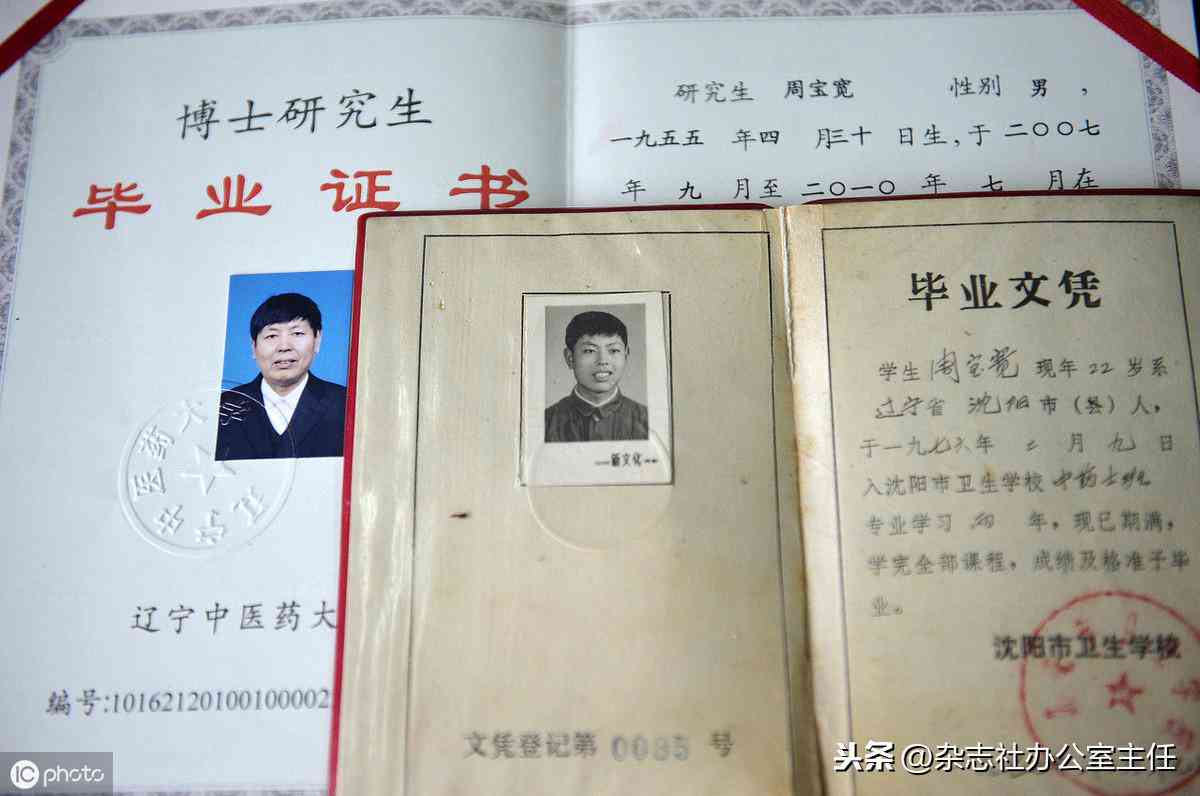 博士研究生
毕业证书
辽宁中医药大
编号:101621201001000002
研究生 周宝宽 性别 男 ,
一九五五 年四 月三十 日生,于 二〇〇七
年 九 月至 二〇一〇 年 七 月在
新文化
文凭登记第 0085 号
毕业文凭
学生 周宝宽 现年 22 岁系
辽宁省 沈阳 市(县)人,
于一九七六年 二 月 九 日
入沈阳市卫生学校 中药士班
专业学习 年,现已期满,
学完全部课程,成绩及格准予毕
业。
沈阳市卫生学校
iC photo
头条 @杂志社办公室主任